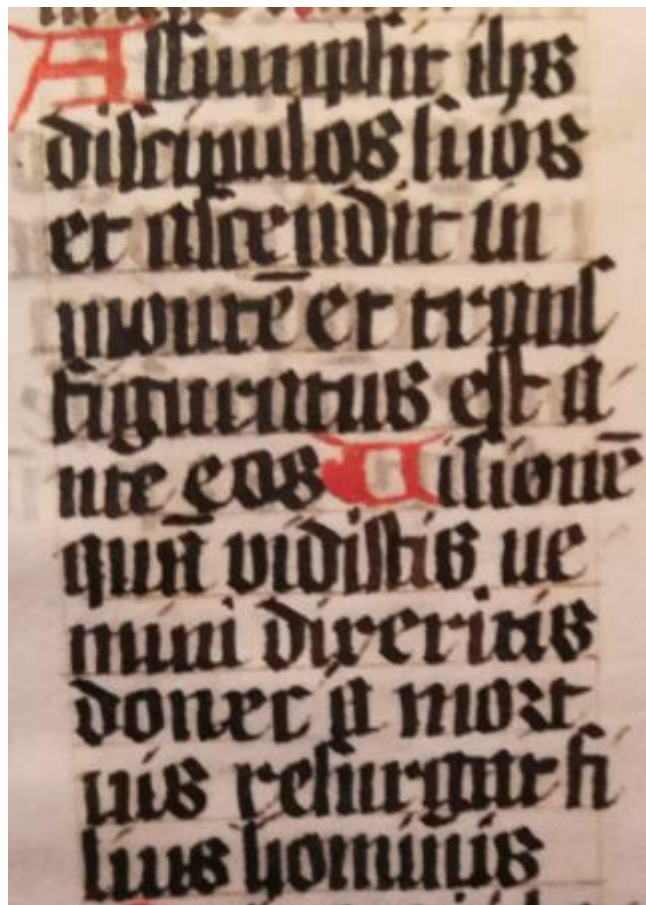 Assumpsit ihs
discipulos suos
et ascendit in
montē et trans
figuratus est a
nte eos Uisionē
quā vidistis ne
mini dixeritis
donec a mort
uis resurgat fi
lius hominis